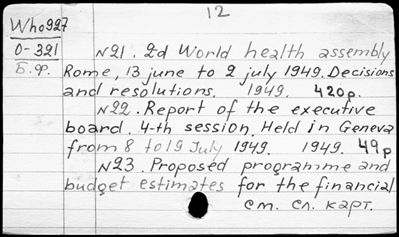 12
Who927
0-321
Б.Ф.
N21. 2d World health assembly
Rome, 13 june to 2 july 1949. Decisions
and resolutions. 1949. 420p.
N22. Report of the executive
board. 4-th session, Held in Geneva
from 8 to 19 July 1949. 1949. 49p
N23. Proposed programme and
budget estimates for the financial
см. сл. карт.